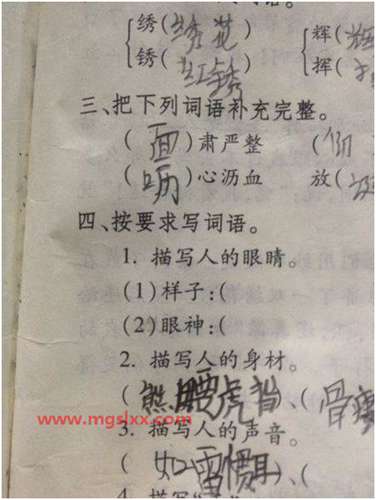 绣(绣花) 辉(辉
锈(红锈) 挥(
三、把下列词语补充完整。
(面)肃严整
()心沥血 放(
四、按要求写词语。
1. 描写人的眼睛。
(1)样子:(
(2)眼神:(
2. 描写人的身材。
(熊腰虎背)、(骨瘦
www.mgslxx.com
3. 描写人的声音。
(如雷惯耳)、(
4. 描写